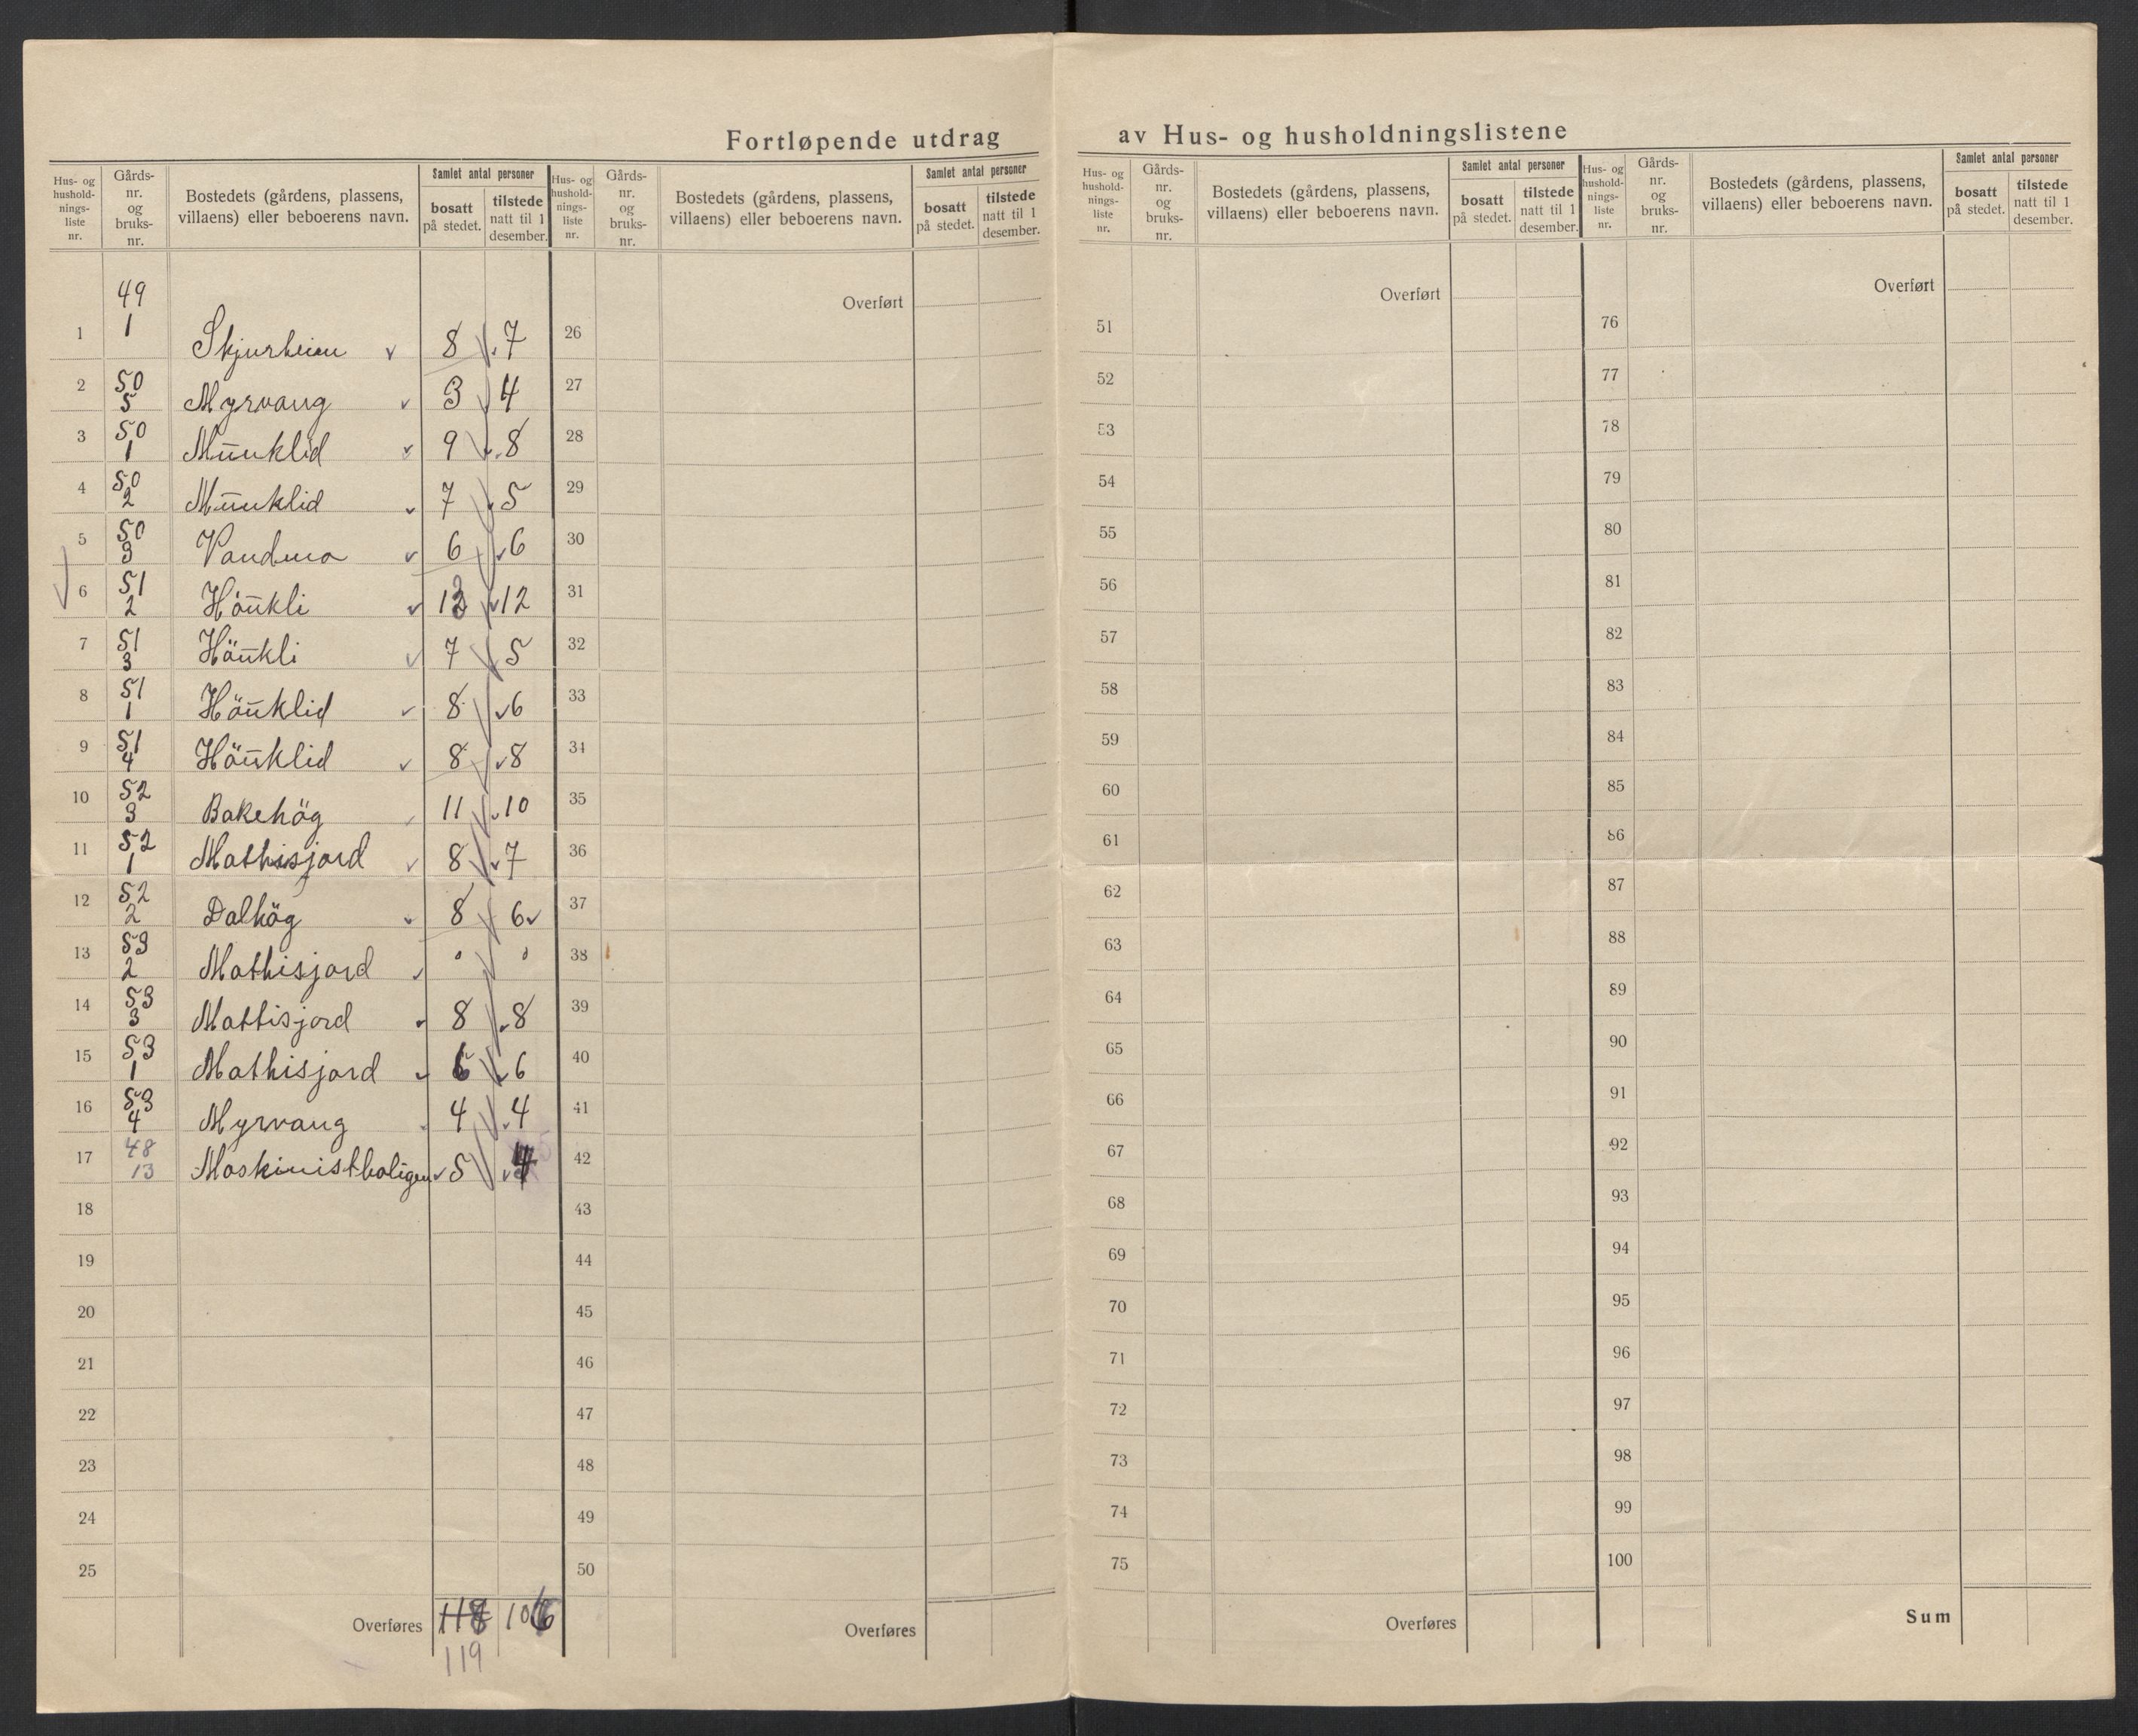 Fortløpende utdrag av Hus- og husholdningslistene
Hus- og husholdnings-liste nr. | Gårds-nr. og bruks-nr. | Bostedets (gårdens, plassens, villaens) eller beboerens navn. | Samlet antal personer | bosatt på stedet. | tilstede natt til 1 desember.
Hus- og husholdnings-liste nr. | Gårds-nr. og bruks-nr. | Bostedets (gårdens, plassens, villaens) eller beboerens navn. | Samlet antal personer | bosatt på stedet. | tilstede natt til 1 desember.
Hus- og husholdnings-liste nr. | Gårds-nr. og bruks-nr. | Bostedets (gårdens, plassens, villaens) eller beboerens navn. | Samlet antal personer | bosatt på stedet. | tilstede natt til 1 desember.
Hus- og husholdnings-liste nr. | Gårds-nr. og bruks-nr. | Bostedets (gårdens, plassens, villaens) eller beboerens navn. | Samlet antal personer | bosatt på stedet. | tilstede natt til 1 desember.
1 49 1 Skjurheim 8 7
2 50 5 Myrvang 3 4
3 50 1 Munklid 9 8
4 50 2 Munklid 7 5
5 50 3 Vandmo 6 6
6 51 2 Hönkli 13 12
7 51 3 Hönkli 7 5
8 51 1 Hönklid 8 6
9 51 4 Hönklid 8 8
10 52 3 Bakehög 11 10
11 52 1 Mathisjord 8 7
12 52 2 Dalhög 8 6
13 53 2 Mathisjord
14 53 3 Mattisjord 8 8
15 53 1 Mathisjord 6 6
16 53 4 Myrvang 4 4
17 48 13 Maskinistboligen 5 4
18
19
20
21
22
23
24
25
Overføres 118 106
119
Overført
26
27
28
29
30
31
32
33
34
35
36
37
38
39
40
41
42
43
44
45
46
47
48
49
50
Overføres
Overført
51
52
53
54
55
56
57
58
59
60
61
62
63
64
65
66
67
68
69
70
71
72
73
74
75
Overføres
Overført
76
77
78
79
80
81
82
83
84
85
86
87
88
89
90
91
92
93
94
95
96
97
98
99
100
Sum